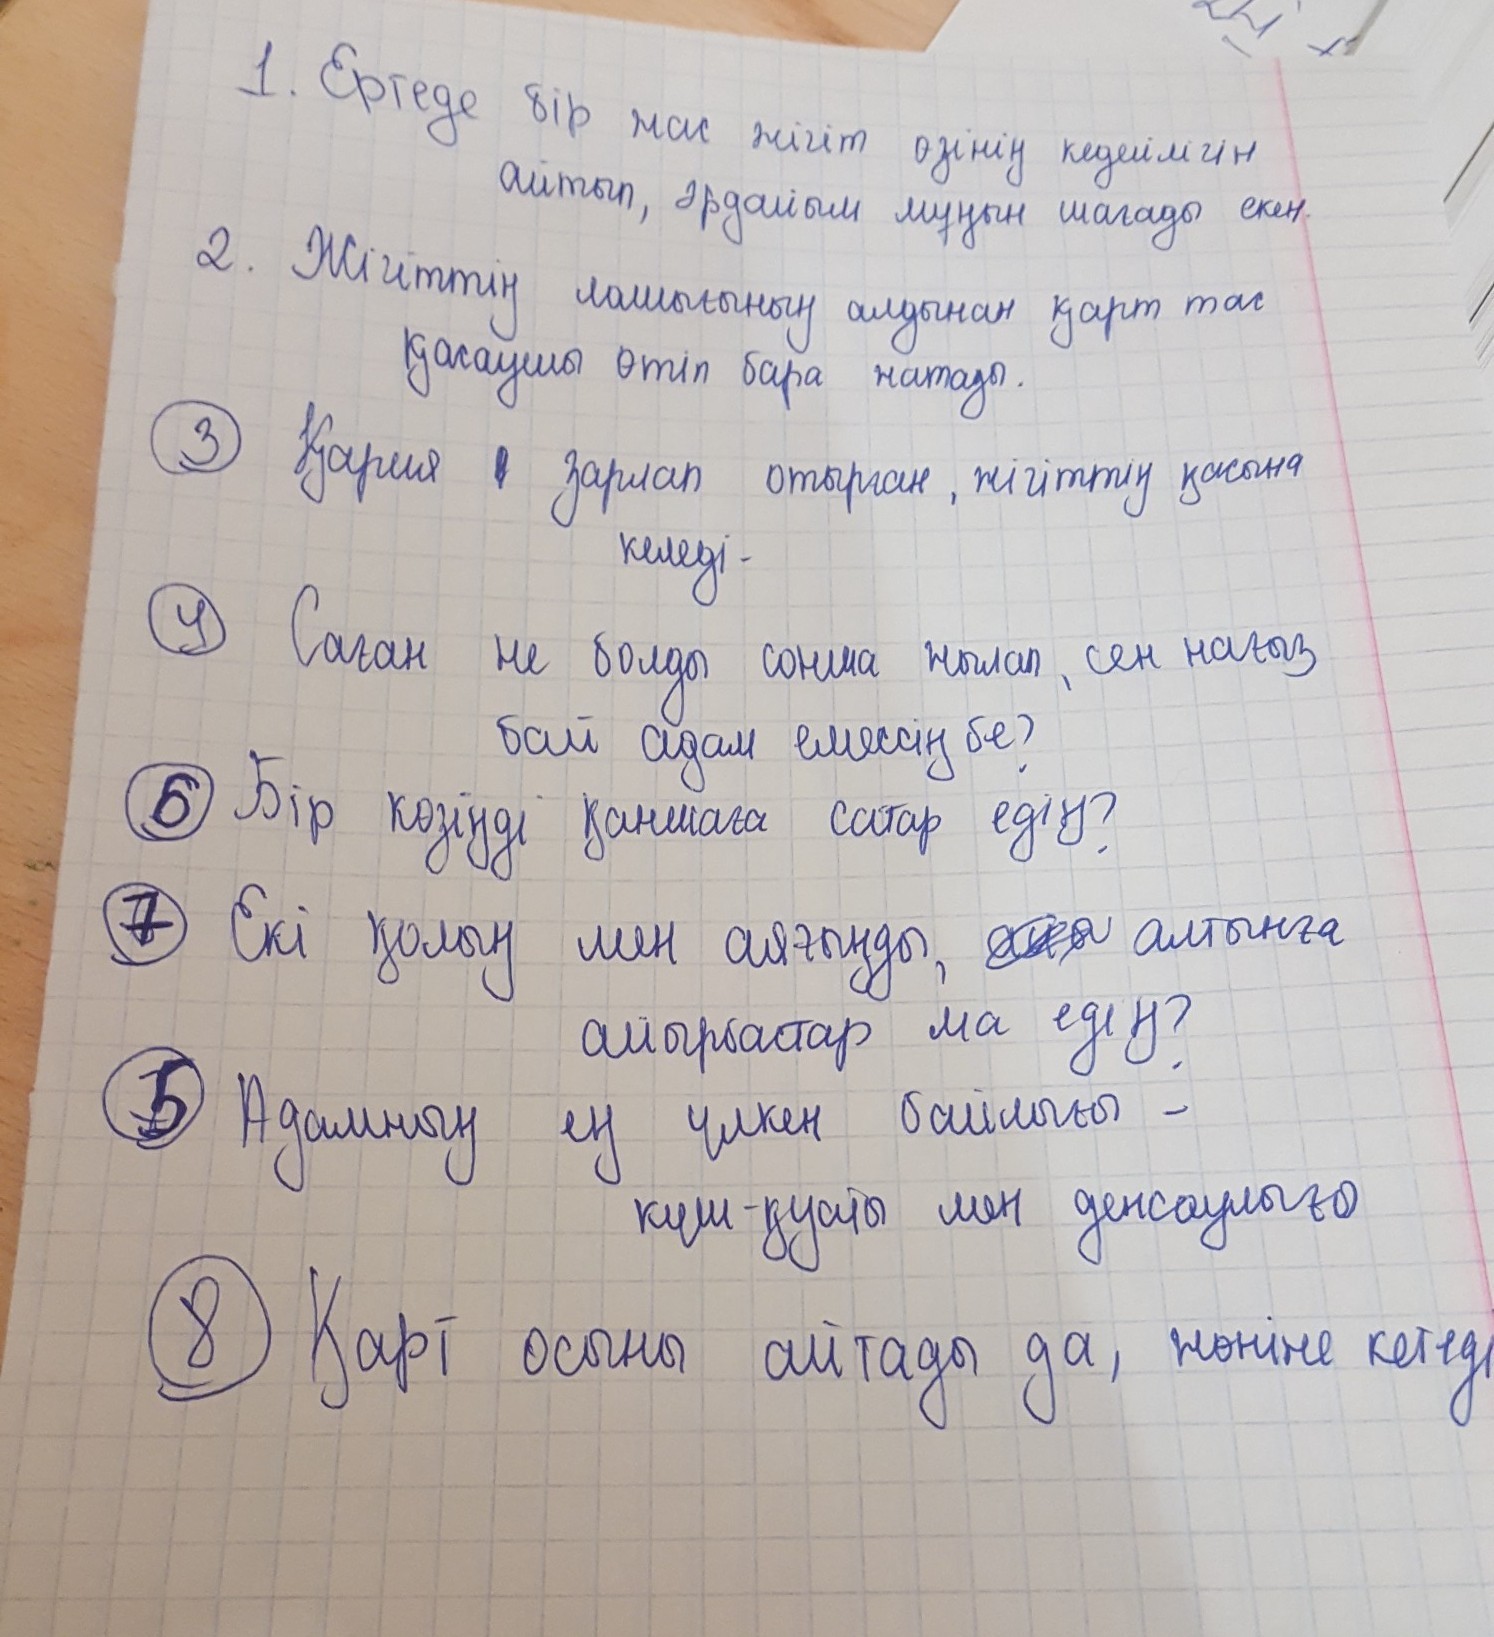 1. Ертеде бір жас жігіт өзінің кедейлігін
айтып, әрдайым мұңын шағады екен.
2. Жігіттің лашығының алдынан қарт тас
қашаушы өтіп бара жатады.
3 Қария зарлап отырған, жігіттің қасына
келеді-
4 Саған не болды сонша жылап, сен нағыз
бай адам емессің бе?
6 Бір көзіңді қаншаға сатар едің?
7 Екі қолың мен аяғыңды, алтынға
айырбастар ма едің?
5 Адамның ең үлкен байлығы –
күш-қуаты мен денсаулығы
8 Қарт осыны айтады да, жөніне кетеді